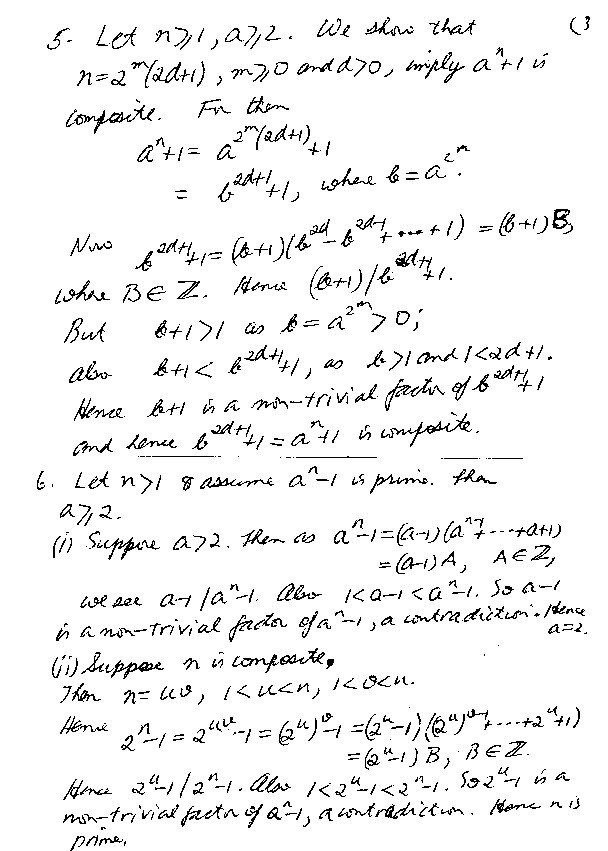 (3
5- Let n⩾1, a⩾2. We show that
n=2^m(2d+1), m⩾0 and d>0, imply a^n+1 is
composite. For then
a^n+1 = a^{2^m(2d+1)}+1
= b^{2d+1}+1, where b=a^{2^m}.
Now b^{2d+1}+1=(b+1)(b^{2d}-b^{2d-1}+...+1) = (b+1)B,
where B∈ℤ. Hence (b+1)/b^{2d+1}+1.
But b+1>1 as b=a^{2^m}>0;
also b+1< b^{2d+1}+1, as b>1 and 1<2d+1.
Hence b+1 is a non-trivial factor of b^{2d+1}+1
and hence b^{2d+1}+1=a^n+1 is composite.
6. Let n>1 & assume a^n-1 is prime. Then
a⩾2.
(i) Suppose a>2. Then as a^n-1=(a-1)(a^{n-1}+...+a+1)
=(a-1)A, A∈ℤ,
we see a-1/a^n-1. Also 1<a-1<a^n-1. So a-1
is a non-trivial factor of a^n-1, a contradiction. Hence
a=2.
(ii) Suppose n is composite.
Then n=uv, 1<u<n, 1<v<n.
Hence 2^n-1=2^{uv}-1=(2^u)^v-1=(2^u-1)((2^u)^{v-1}+...+2^u+1)
=(2^u-1)B, B∈ℤ.
Hence 2^u-1/2^n-1. Also 1<2^u-1<2^n-1. So 2^u-1 is a
non-trivial factor of a^n-1, a contradiction. Hence n is
prime.